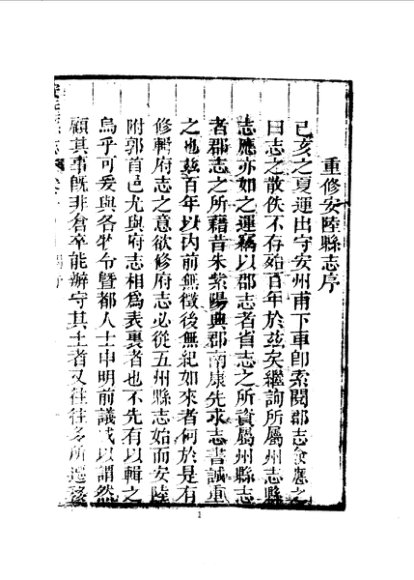 重修安陸縣志序
己亥之夏運出守安州甫下車卽索閱郡志僉應之
曰志之散佚不存殆百年於茲矣繼詢所屬州志縣
志應亦如之運竊以郡志者省志之所資屬州縣志
者郡志之所藉昔朱紫陽典郡南康先求志書誠重
之也茲百年以內前無徵後無紀如來者何於是有
修輯府志之意欲修府志必從五州縣志始而安陸
附郭首邑尤與府志相爲表裏者也不先有以輯之
烏乎可爰與各牧令曁都人士申明前議咸以謂然
顧其事旣非倉卒能辦守其土者又往往多所遷移
1